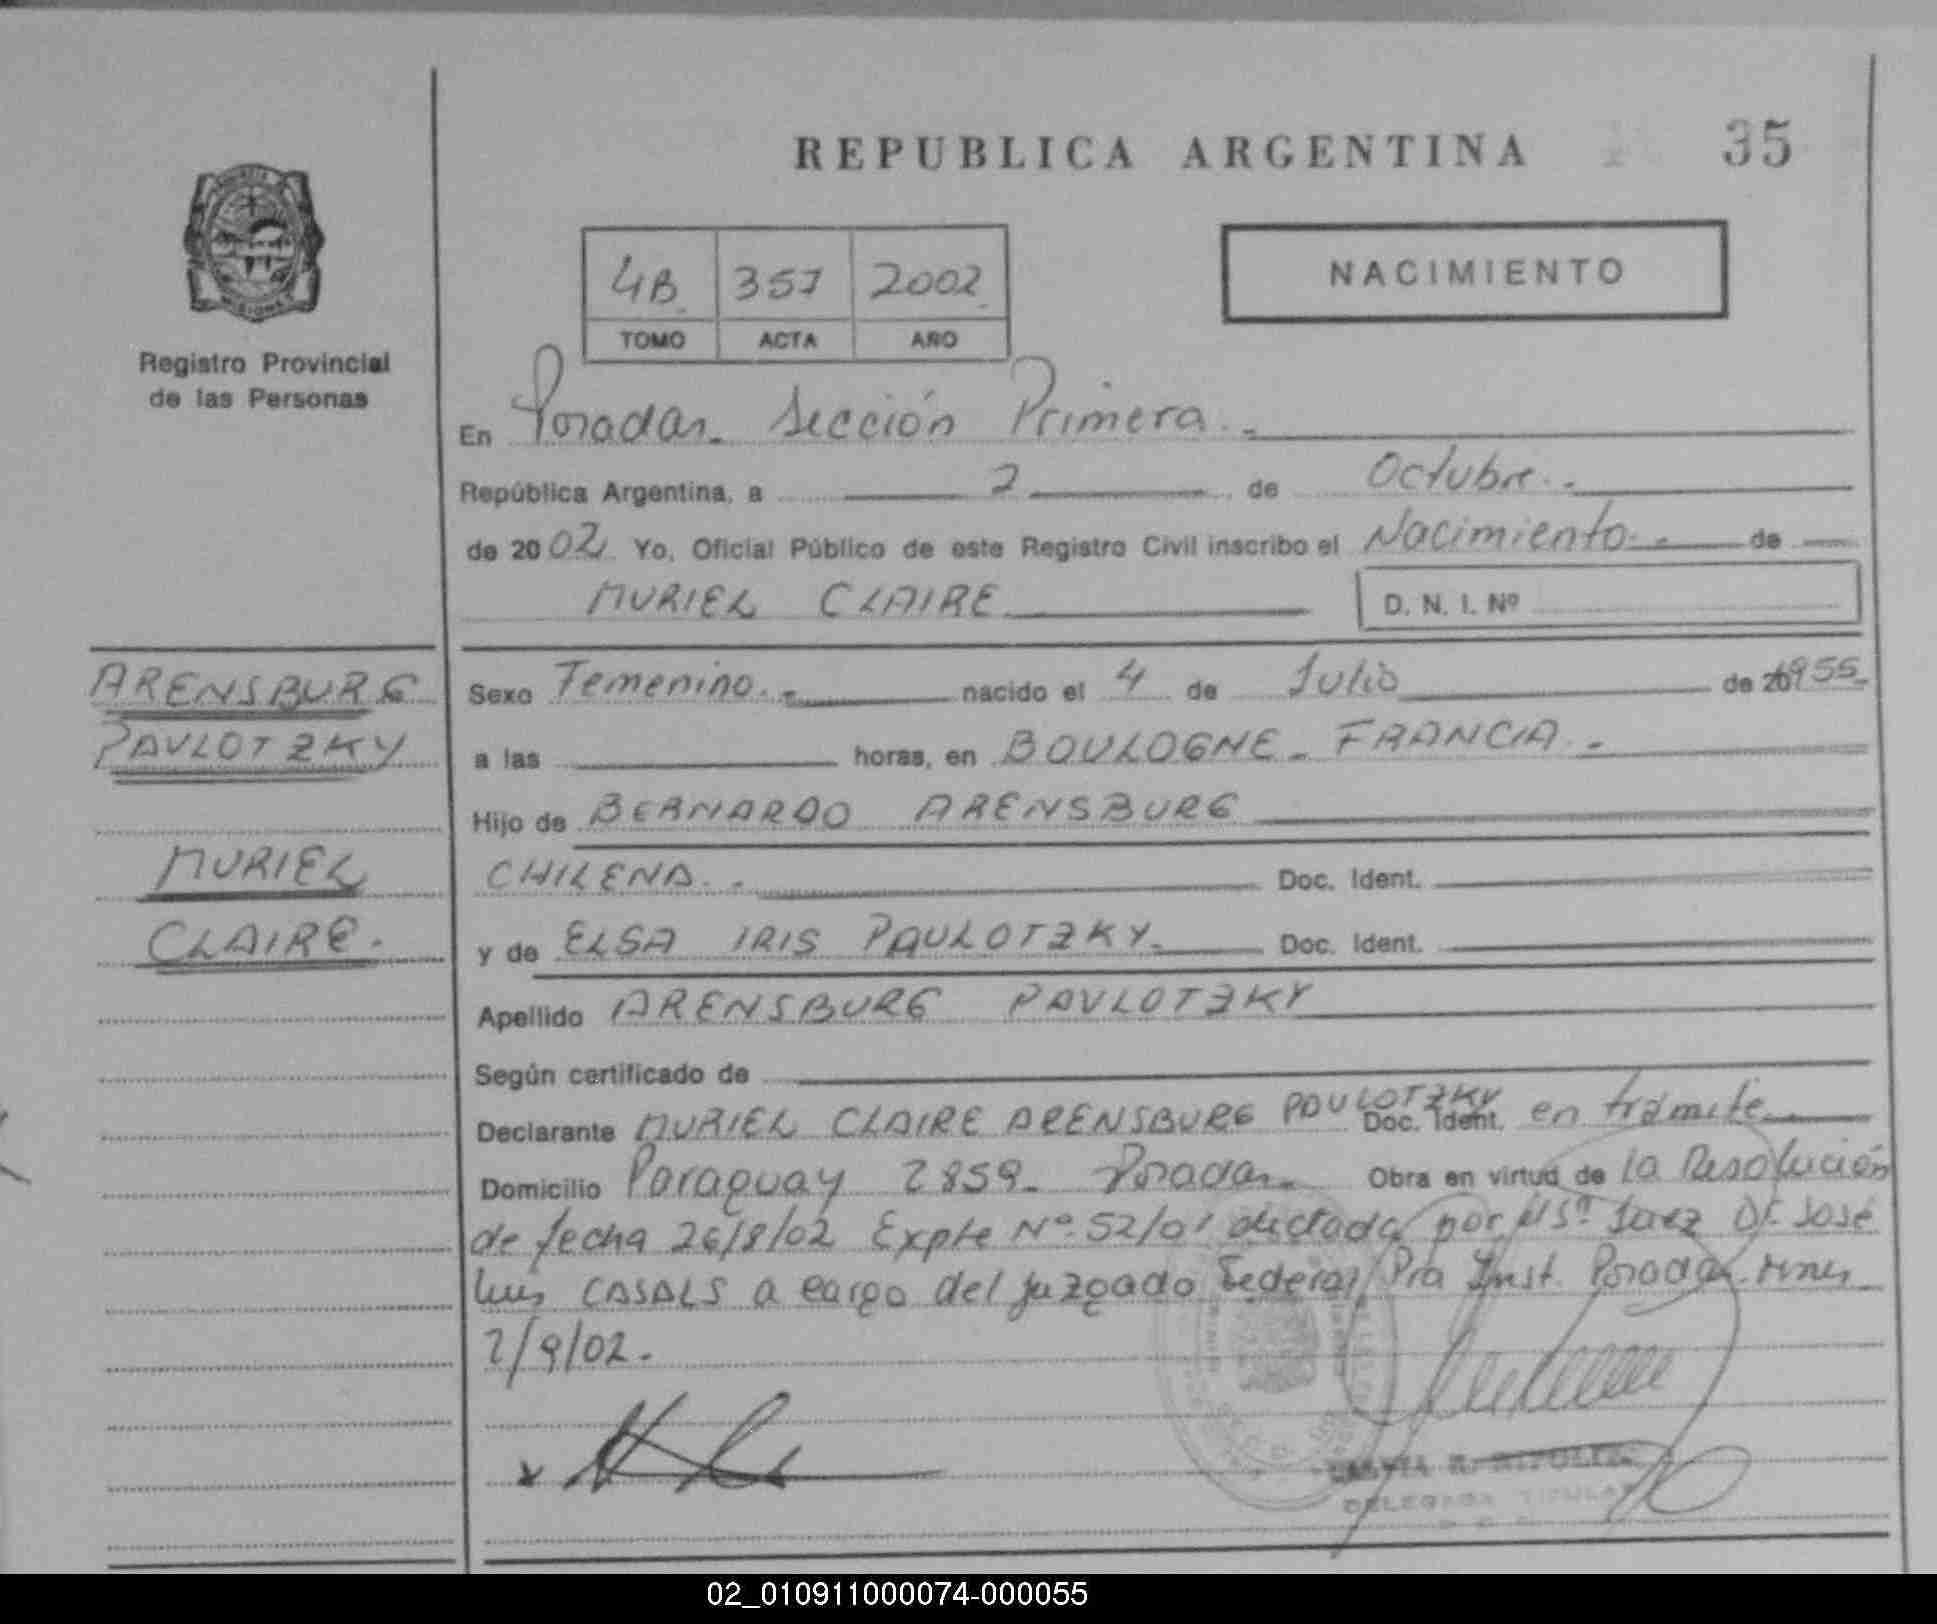 REPUBLICA ARGENTINA 35
4B 357 2002
TOMO ACTA AÑO
NACIMIENTO
Registro Provincial
de las Personas
En Posadas. Sección Primera.-
República Argentina, a 2 de Octubre.-
de 2002 Yo, Oficial Público de este Registro Civil inscribo el Nacimiento.- de
MURIEL CLAIRE D. N. I. Nº
ARENSBURG
PAVLOTZKY
MURIEL
CLAIRE.
Sexo Femenino.- nacido el 4 de Julio de 1955-
a las horas, en BOULOGNE - FRANCIA.-
Hijo de BERNARDO ARENSBURG
CHILENA.- Doc. Ident.
y de ELSA IRIS PAULOTZKY- Doc. Ident.
Apellido ARENSBURG PAVLOTZKY
Según certificado de
Declarante MURIEL CLAIRE ARENSBURG PAULOTZKY Doc. Ident. en trámite
Domicilio Paraguay 2859- Posadas- Obra en virtud de la Resolución
de fecha 26/8/02 Expte Nº 52/01 dictada por Juez Dr. José
Luis CASALS a cargo del juzgado Federal Pra Inst. Posadas
2/9/02.
DELEGADA TITULAR
02_010911000074-000055